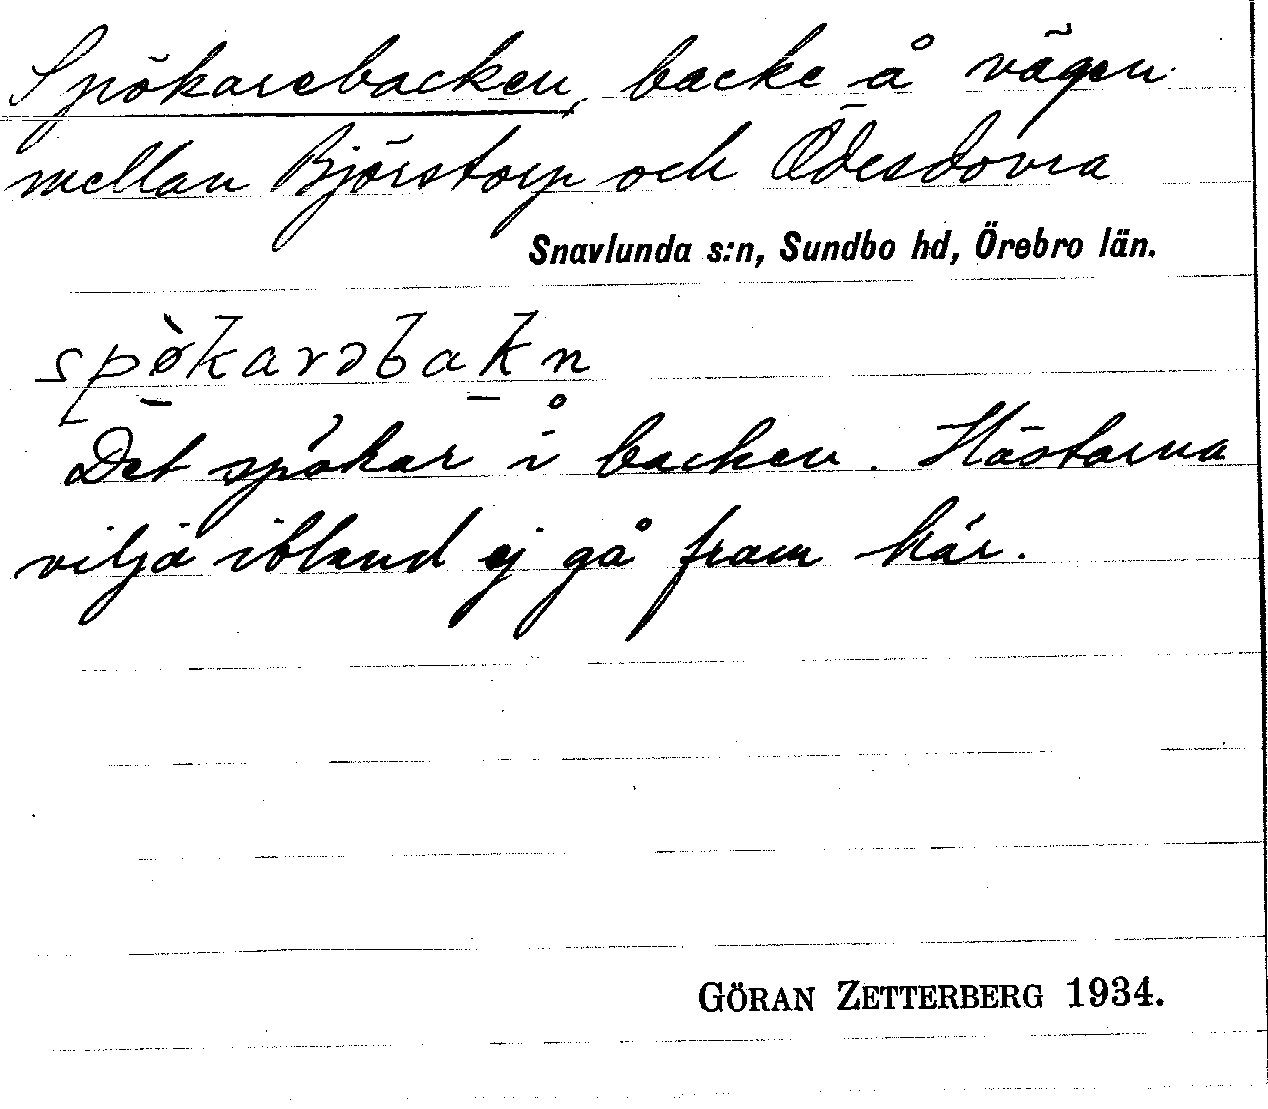 Spökarebacken, backe å vägen
mellan Björstorp och Ödesdovra
Snavlunda s:n, Sundbo hd, Örebro län.
spø̀karəbakn
Det spökar i backen. Hästarna
vilja ibland ej gå fram här.
GÖRAN ZETTERBERG 1934.